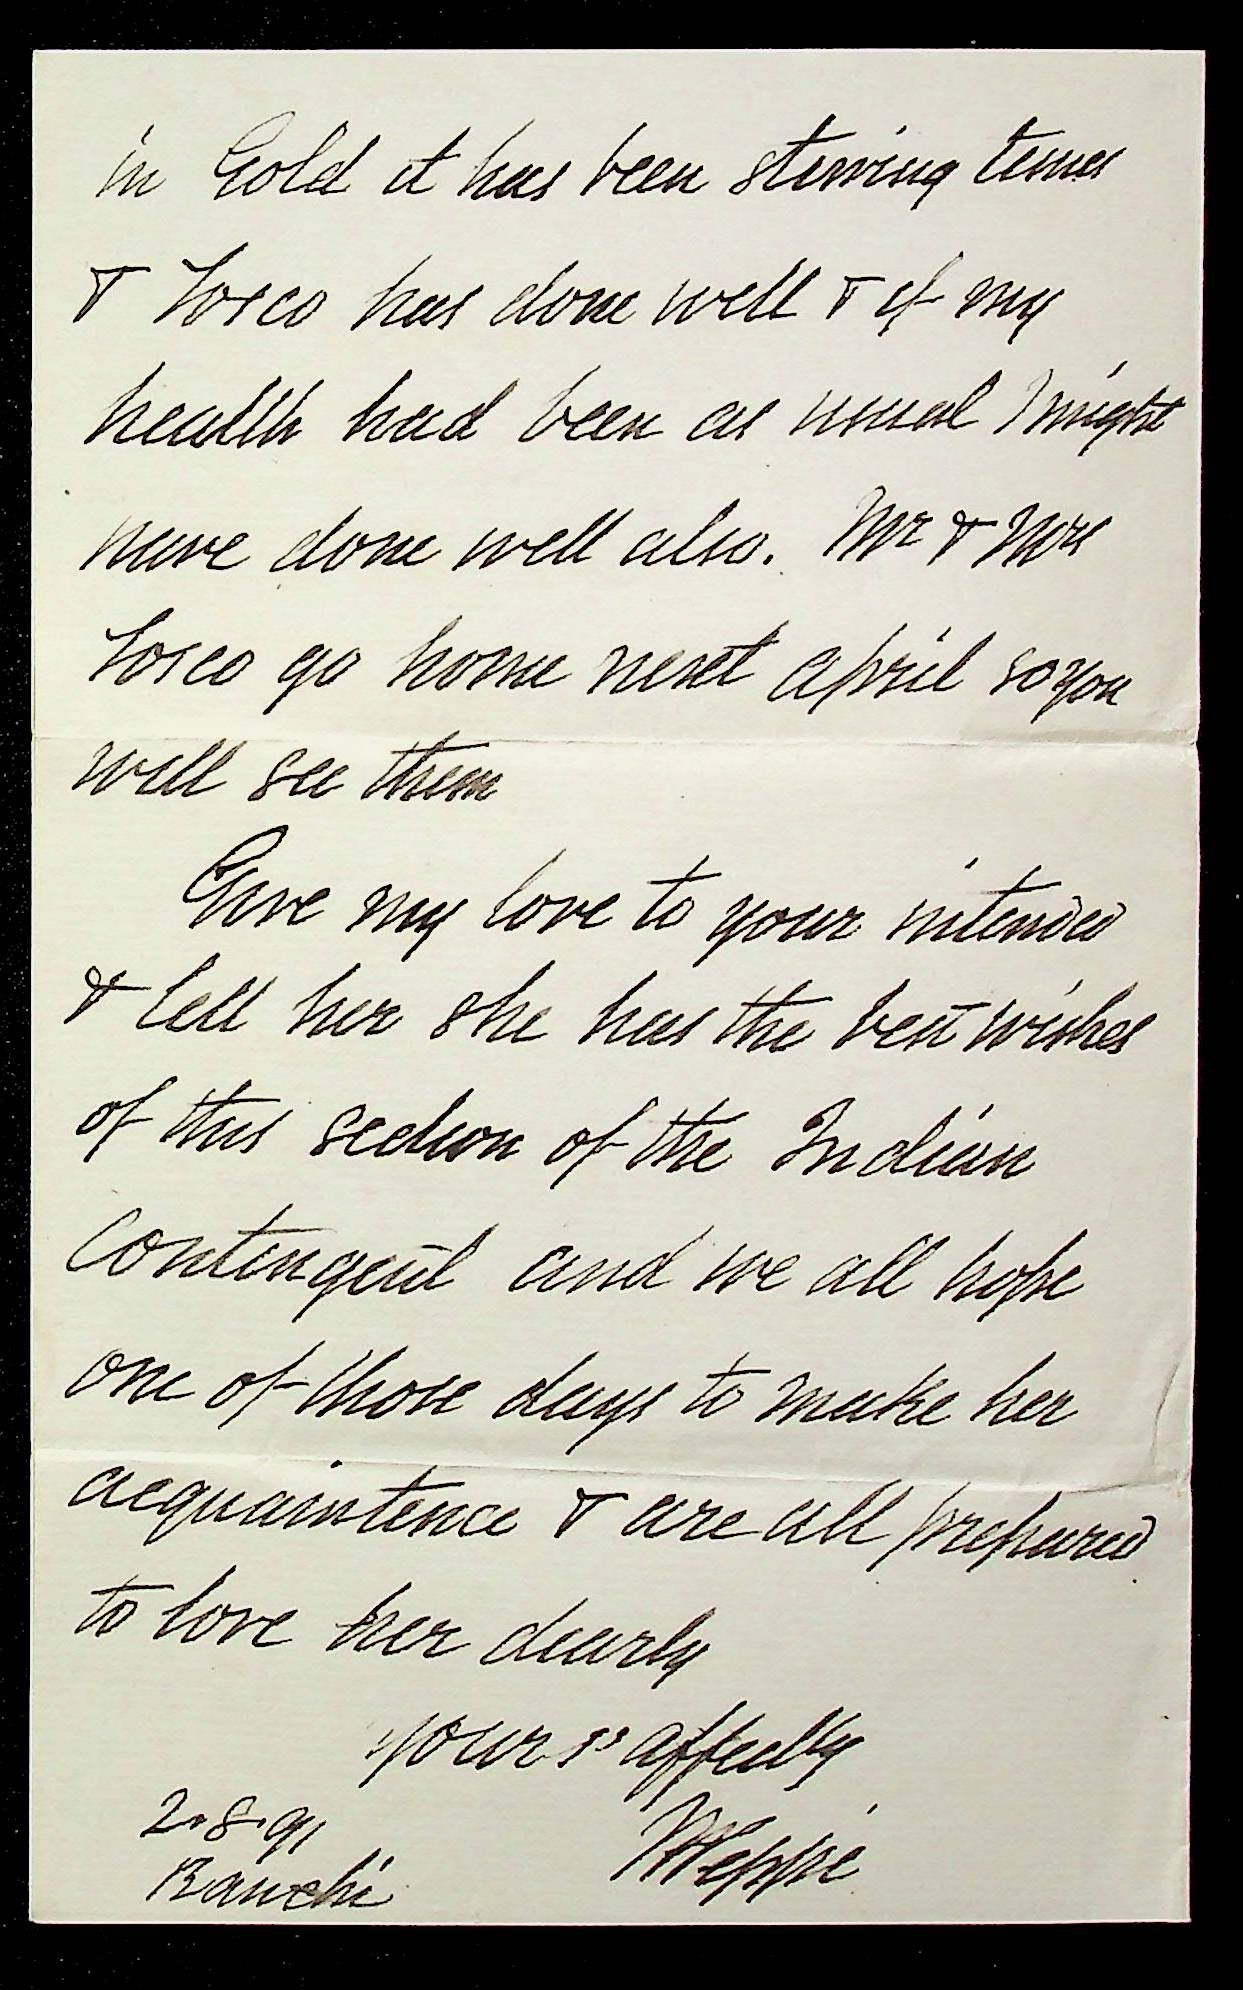 in Gold it has been stirring times
& Tosco has done well & if my
health had been as usual I might
have done well also. Mr & Mrs
Tosco go home next April so you
will see them
Give my love to your intended
& tell her she has the best wishes
of this section of the Indian
Contingent and we all hope
one of those days to make her
acquaintence & are all prepared
to love her dearly
yours affectly
2.8.91
Ranchi